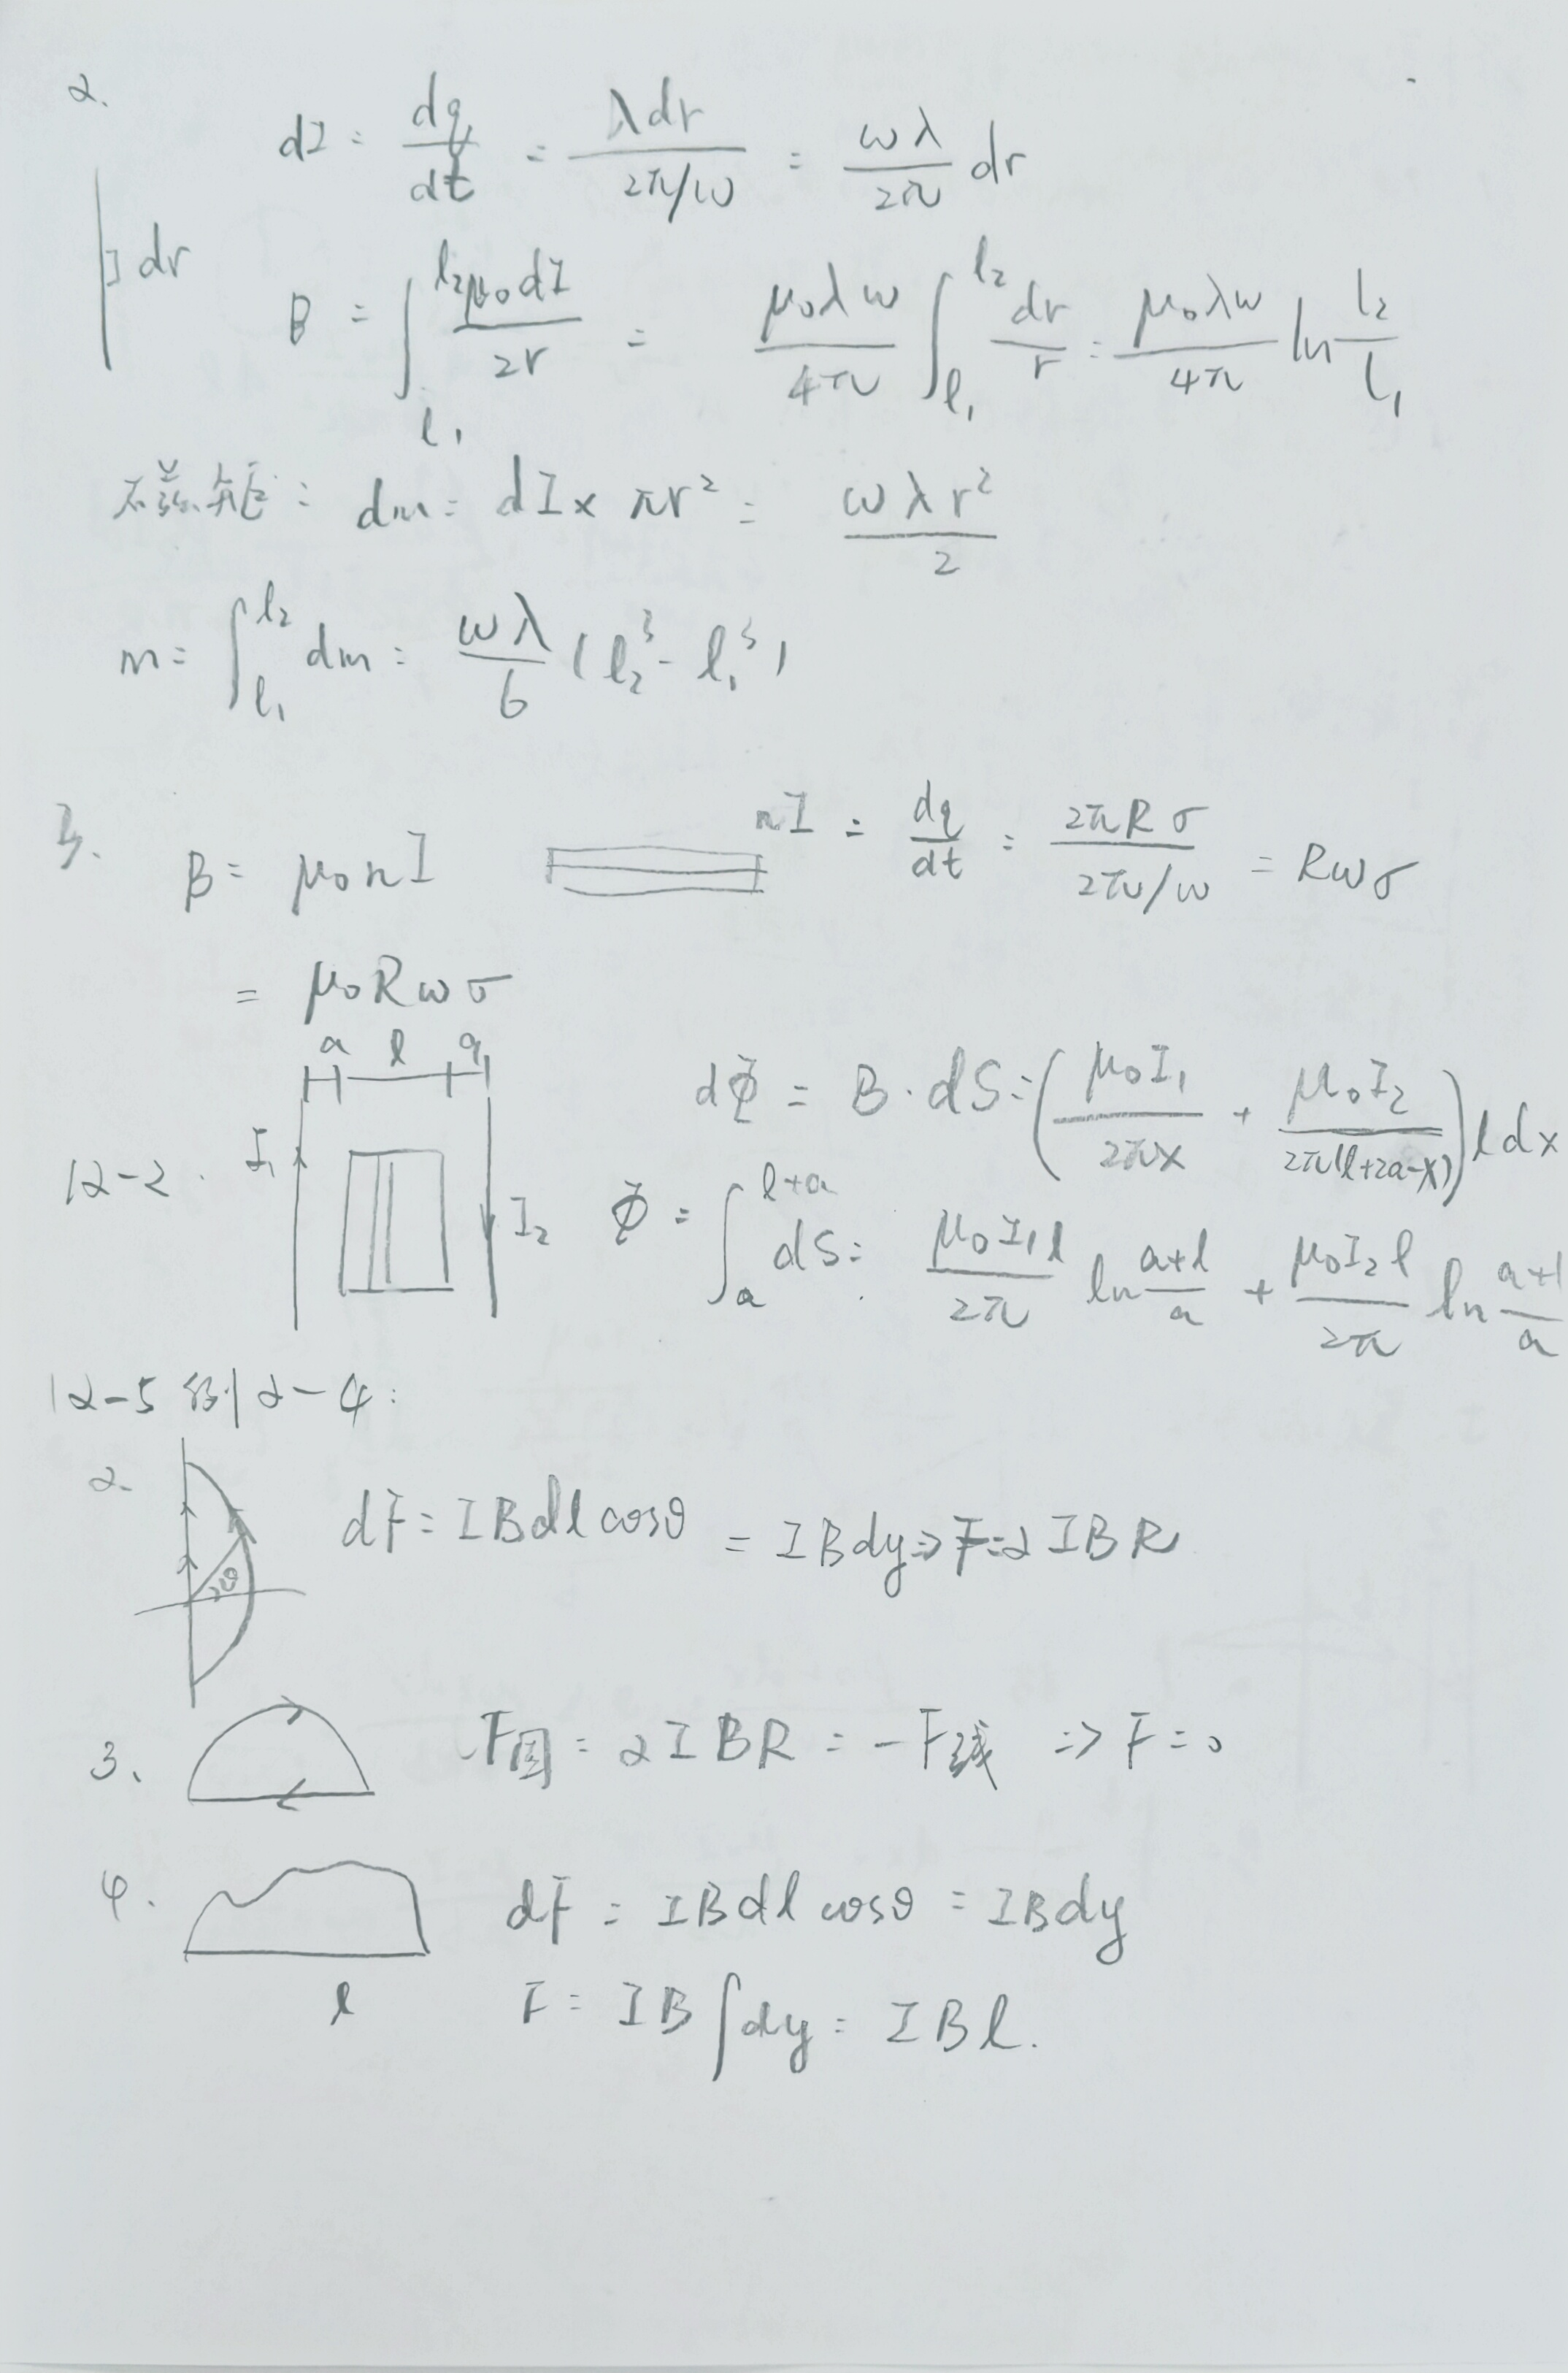 2.
dI = dq/dt = λdr/(2π/ω) = ωλ/2π dr
dr
B = ∫_{l₁}^{l₂} μ₀dI/2r = μ₀λω/4π ∫_{l₁}^{l₂} dr/r = μ₀λω/4π ln l₂/l₁
磁矩: dm = dI × πr² = ωλr²/2
m = ∫_{l₁}^{l₂} dm = ωλ/6 (l₂³ - l₁³)
3. B = μ₀nI nI = dq/dt = 2πRσ/(2π/ω) = Rωσ
= μ₀Rωσ
a l a
12-2. I₁ I₂ dΦ = B·dS = (μ₀I₁/2πx + μ₀I₂/2π(l+2a-x)) l dx
Φ = ∫_{a}^{l+a} dS = μ₀I₁l/2π ln (a+l)/a + μ₀I₂l/2π ln (a+l)/a
12-5 例2-4:
2. θ dF = IBdl cosθ = IBdy ⇒ F = 2IBR
3. F圆 = 2IBR = -F线 ⇒ F = 0
4. dF = IBdl cosθ = IBdy
l F = IB∫dy = IBl.